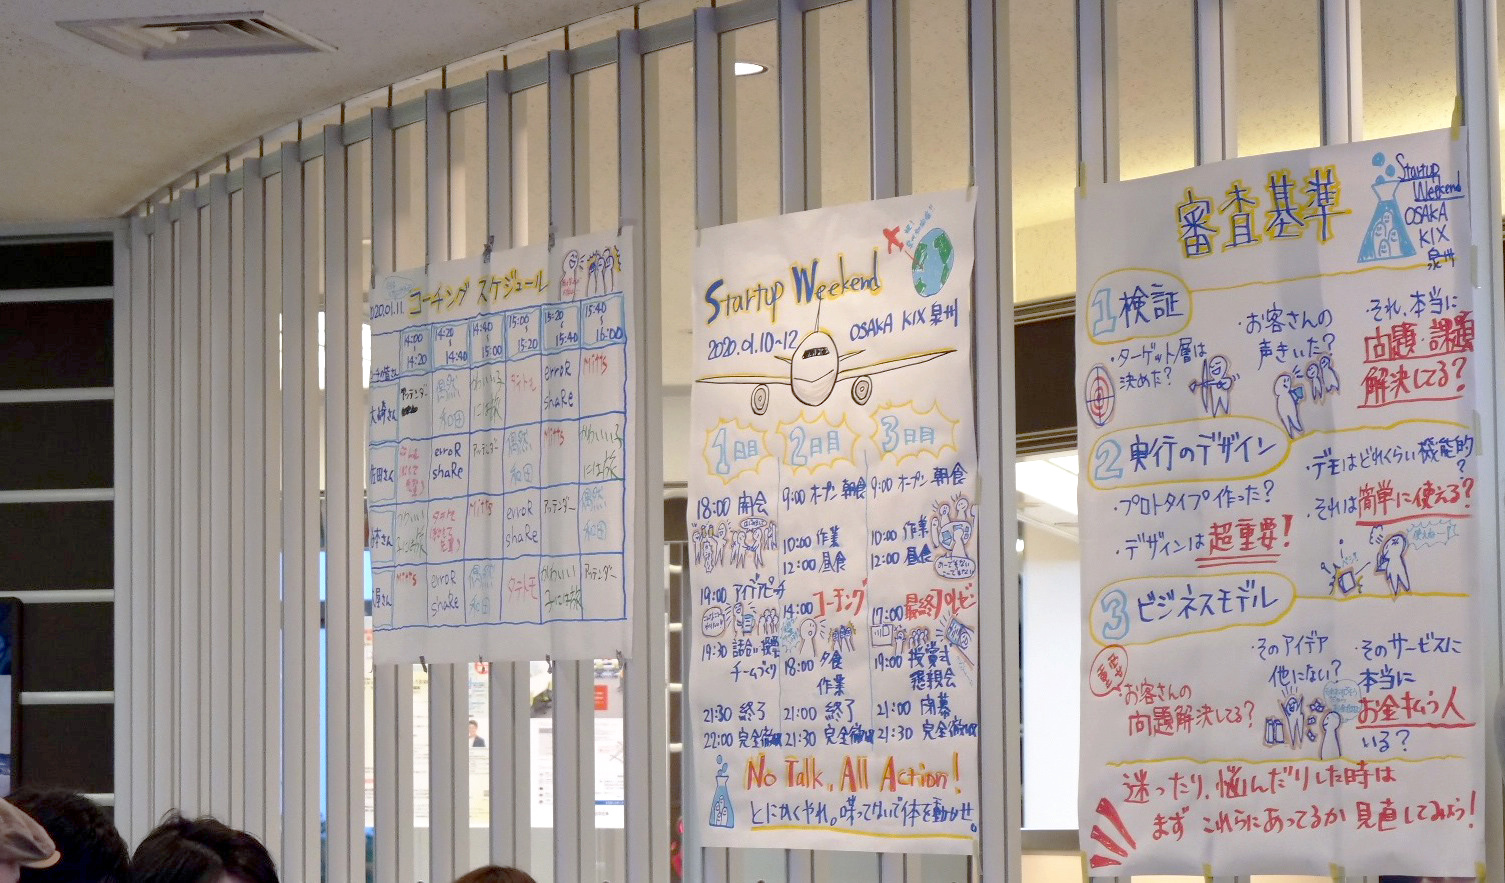 2020.01.11. コーチング スケジュール
14:00 14:20
14:20 14:40
14:40 15:00
15:00 15:20
15:20 15:40
15:40 16:00
大崎さん アッテンダー 偶然 和田 かわいい子には旅 タニトモ erroR shaRe Mitts
佐田さん erroR shaRe アッテンダー 偶然 和田 Mitts かわいい子には旅
かわいい子には旅 Mitts erroR shaRe アッテンダー 偶然 和田
Mitts erroR shaRe 偶然 和田 タニトモ かわいい子には旅 アッテンダー
Startup Weekend
2020.01.10~12 OSAKA KIX 泉州
1日目
18:00 開会
19:00 アイデアピッチ
19:30 話合い・投票
チームづくり
21:30 終了
22:00 完全撤収
2日目
9:00 オープン 朝食
10:00 作業
12:00 昼食
14:00 コーチング
18:00 夕食
作業
21:00 終了
21:30 完全撤収
3日目
9:00 オープン 朝食
10:00 作業
12:00 昼食
17:00 最終プレゼン
19:00 授賞式
懇親会
21:00 閉幕
21:30 完全撤収
No Talk, All Action!
とにかくやれ。喋ってないで体を動かせ。
審査基準
Startup
Weekend
OSAKA
KIX
泉州
1 検証
・ターゲット層は
決めた?
・お客さんの
声きいた?
・それ、本当に
問題・課題
解決してる?
2 実行のデザイン
・プロトタイプ作った?
・デザインは超重要!
・デモはどれくらい機能的
?
・それは簡単に使える?
3 ビジネスモデル
重要
・お客さんの
問題解決してる?
・そのアイデア
他にない?
・そのサービスに
本当に
お金払う人
いる?
迷ったり、悩んだりした時は
まず これらにあってるか 見直してみよう!